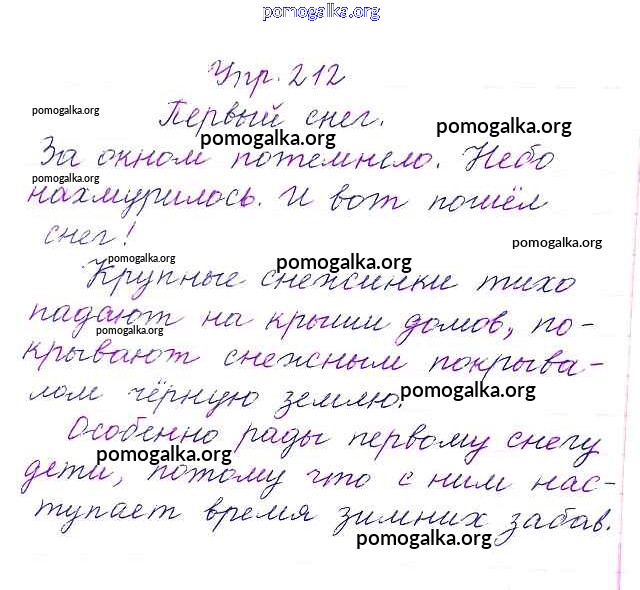 pomogalka.org
Упр. 212
pomogalka.org
Первый снег.
pomogalka.org
pomogalka.org
За окном потемнело. Небо
pomogalka.org
нахмурилось. И вот пошёл
снег!
pomogalka.org
pomogalka.org
pomogalka.org
Крупные снежинки тихо
падают на крыши домов, по-
pomogalka.org
крывают снежным покрыва-
лом чёрную землю.
pomogalka.org
Особенно рады первому снегу
pomogalka.org
дети, потому что с ним нас-
тупает время зимних забав.
pomogalka.org